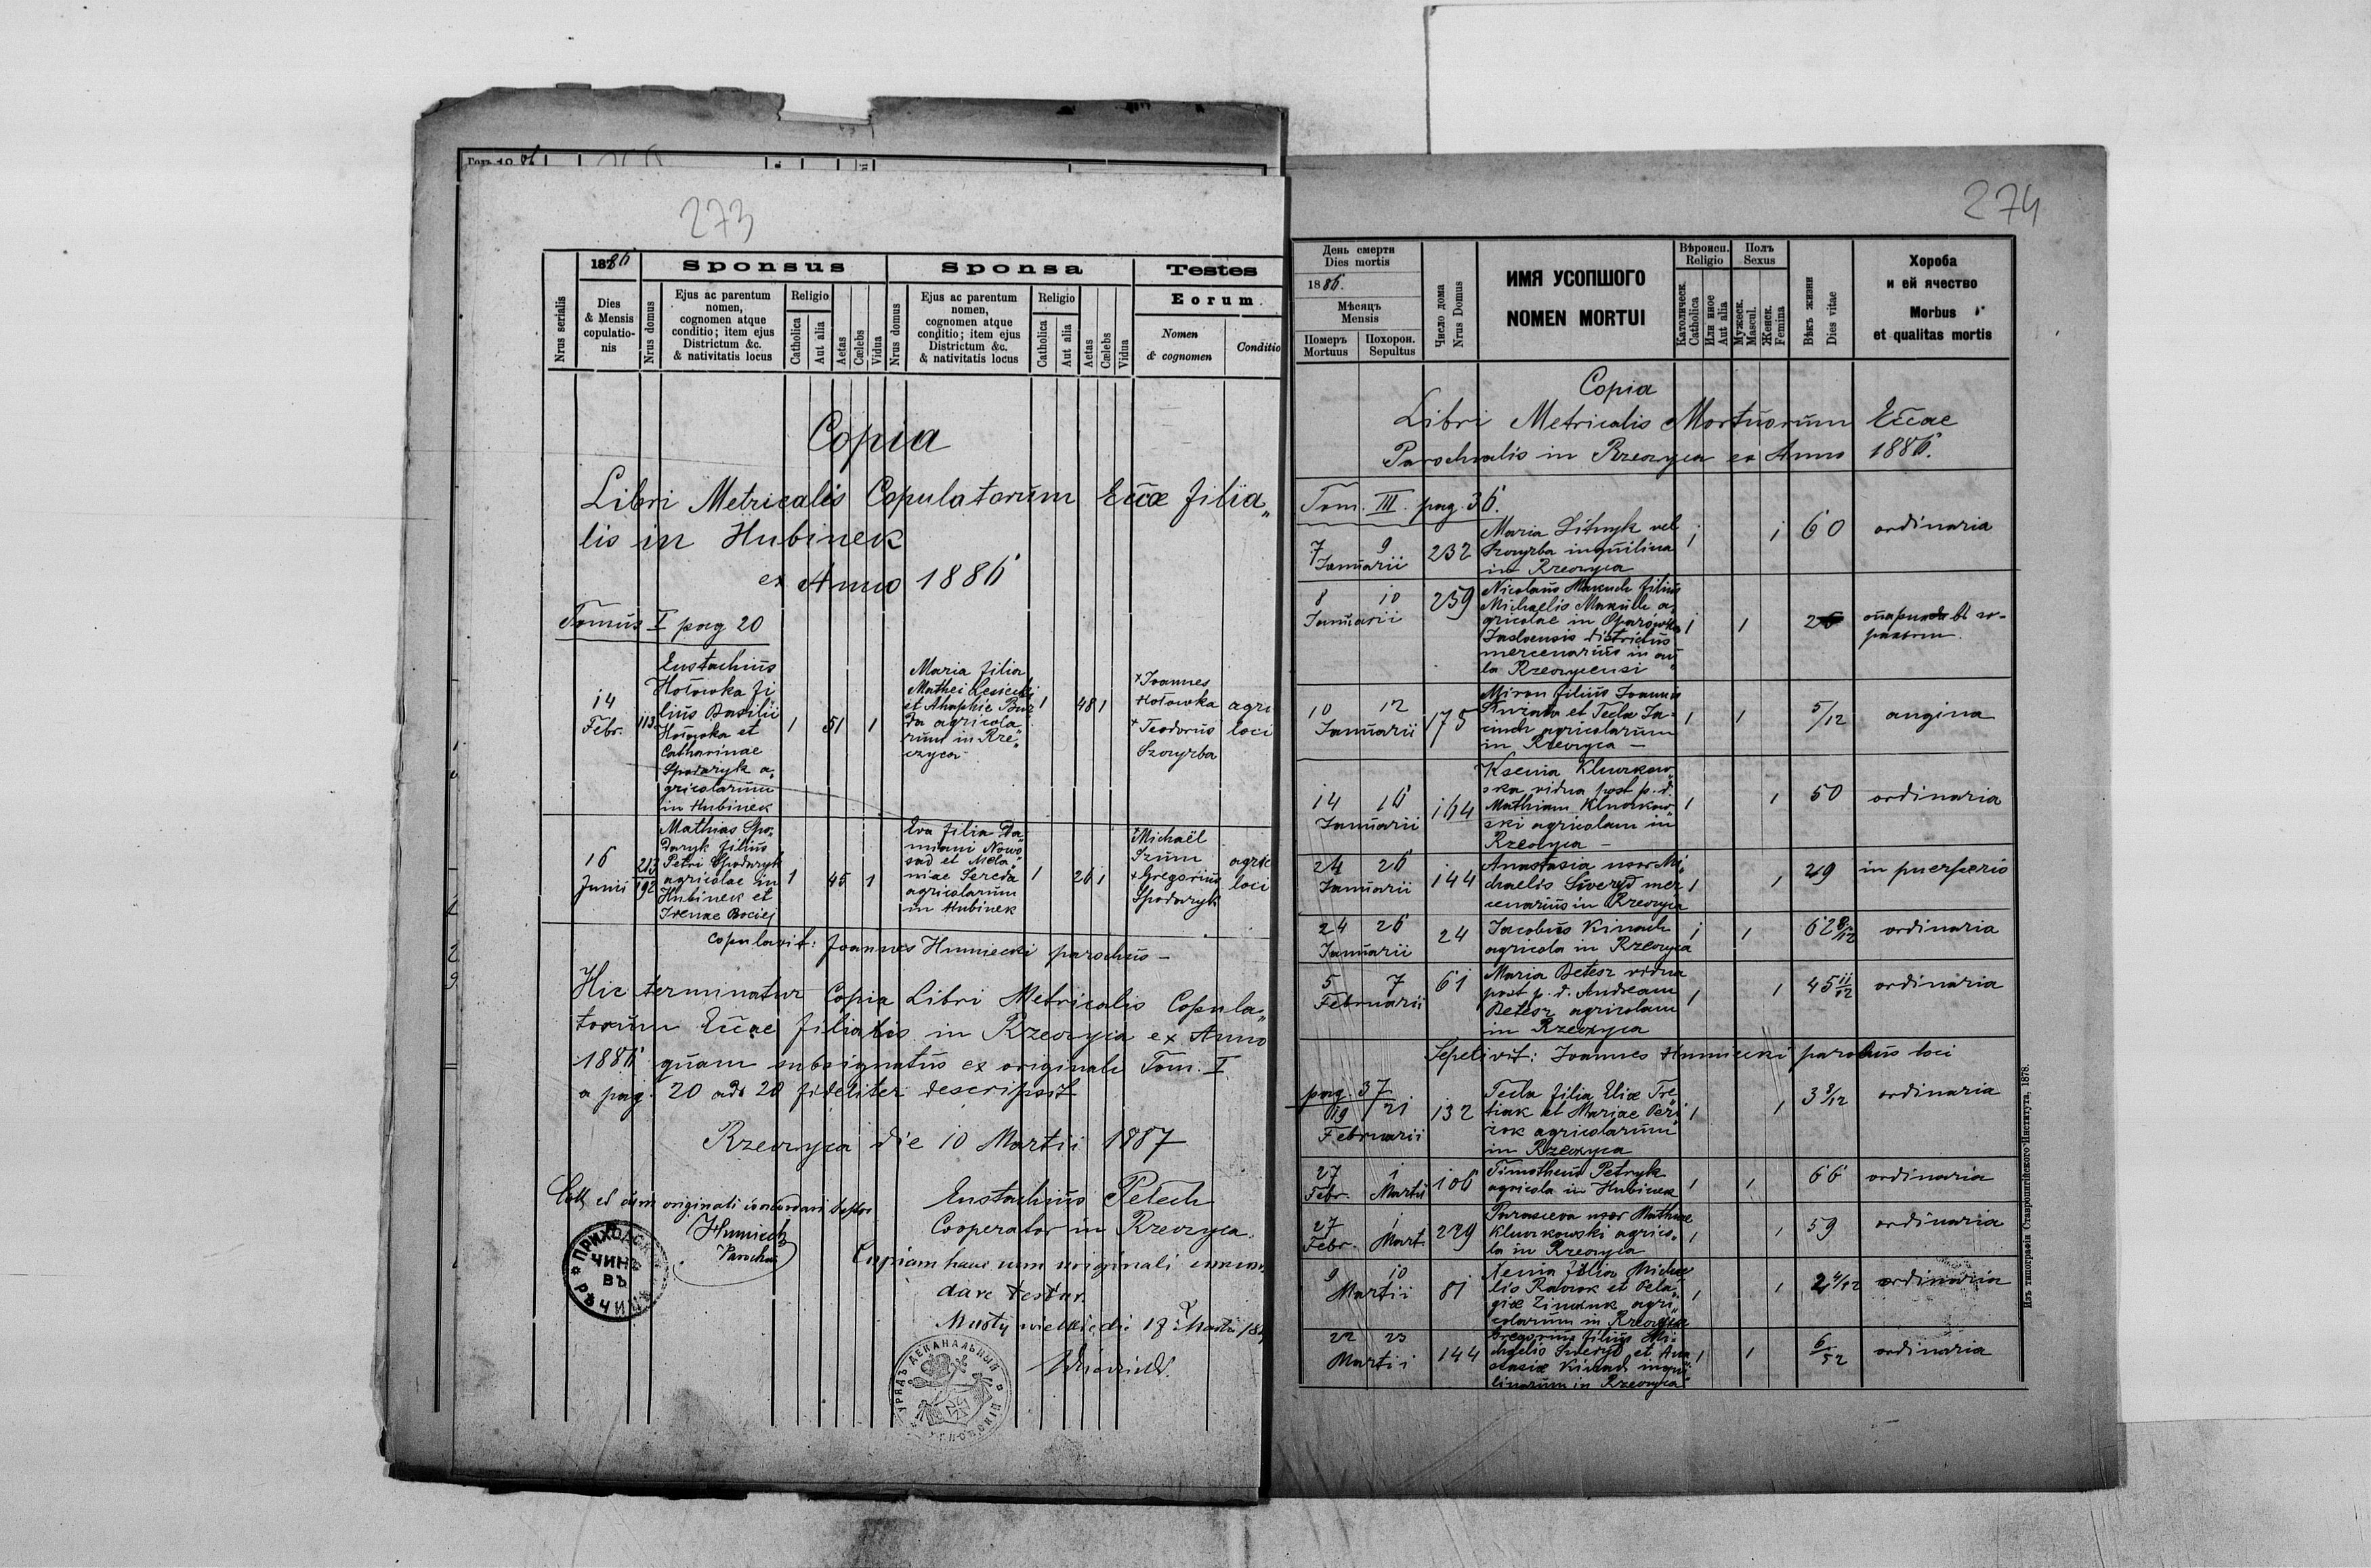 273
1886
Sponsus
Sponsa
Testes
Nrus serialis
Dies
& Mensis
copulatio-
nis
Nrus domus
Ejus ac parentum
nomen,
cognomen atque
conditio; item ejus
Districtum &c.
& nativitatis locus
Religio
Catholica
Aut alia
Aetas
Cælebs
Vidua
Nrus domus
Ejus ac parentum
nomen,
cognomen atque
conditio; item ejus
Districtum &c.
& nativitatis locus
Religio
Catholica
Aut alia
Aetas
Cælebs
Vidua
Eorum
Nomen
& cognomen
Conditio
Copia
Libri Metricalis Copulatorum Eccae filia„
lis in Hubinek
ex Anno 1886
Tomus I pag 20
14
Febr.
113
Eustachius
Hołowka fi
lius Basilii
Hołowka et
Catharinae
Spodaryk a„
gricolarum
in Hubinek
1
51
1
Maria filia
Mathei
et
da agricola
rum in Rze„
czyca
1
48 1
+ Joannes
Hołowka
+ Teodorus
Szczyrba
agri
loci
16
Junii
213
192
Mathias Spo„
daryk filius
Petri Spodaryk
agricolae in
Hubinek et
Irenae Bociej
1
45
1
Eva filia Da
miani Nowo
sad et Mela„
niae Sereda
agricolarum
in Hubinek
1
26 1
+ Michaël
Szum
+ Gregorius
Spodaryk
agric
loci
copulavit: Joannes Humiecki parochus –
Hic terminatur Copia Libri Metricalis Copula„
torum Eccae filialis in Rzeczyca ex Anno
1886 quam subsignatus ex originali Tom. I
a pag. 20 ad 20 fideliter descripsit
Rzeczyca die 10 Martii 1887
Eustachius Pelech
Cooperator in Rzeczyca.
originali
Humiecki
Parochus
Copiam hanc cum originali concor„
dare testor.
Mosty wielkie die
ПРИХОДСК
ЧИН
ВЪ
УРЯДЪ ДЕКАНАЛЬНЫЙ
274
День смерти
Dies mortis
1886.
Мѣсяцъ
Mensis
Померъ
Mortuus
Похорон.
Sepultus
Число дома
Nrus Domus
ИМЯ УСОПШОГО
NOMEN MORTUI
Вѣроисп.
Religio
Католическ.
Catholica
Или иное
Aut alia
Полъ
Sexus
Мужеск.
Mascul.
Женск.
Femina
Вѣкъ жизни
Dies vitae
Хороба
и ей ячество
Morbus
et qualitas mortis
Copia
Libri Metricalis Mortuorum Eccae
Parochialis in Rzeczyca ex Anno 1886.
Tom. III. pag. 36.
7 9
Januarii
232
Maria Litwyk vel
Szczyrba inquilina
in Rzeczyca
1
1
60
ordinaria
8 10
Januarii
259
Nicolaus Makuch filius
Michaelis Makuch a„
gricolae in Oparówka
Jasloensis districtus
mercenarius in au
la Rzeczycensi
1
1
10 12
Januarii
175
Miron filius Joannis
et Tecla Ja„
agricolarum
in Rzeczyca –
1
1
5/12
angina
14 16
Januarii
164
Ksenia Kluczkow„
ska vidua post p. d.
Mathiam Kluczkow„
ski agricolam in
Rzeczyca –
1
1
50
ordinaria
24 26
Januarii
144
Anastasia uxor Mi„
chaelis Swered mer
cenarius in Rzeczyca
1
1
29
in puerperio
24 26
Januarii
24
Jacobus Kinach
agricola in Rzeczyca
1
1
62 8/12
ordinaria
5 7
Februarii
61
Maria Betesz vidua
post p. d. Andream
Betesz agricolam
in Rzeczyca
1
1
45 11/12
ordinaria
Sepelivit: Joannes Humiecki parochus loci
pag. 37
19 21
Februarii
132
Tecla filia Eliæ Tre
tiak et Mariae
agricolarum
in Rzeczyca
1
1
3 8/12
ordinaria
27 1
Febr. Martii
106
Timotheus Petryk
agricola in Hubinek
1
1
66
ordinaria
27 1
Febr. Mart.
229
Parasceva uxor Mathiae
Kluczkowski agrico„
la in Rzeczyca
1
1
59
ordinaria
9 10
Martii
81
Xenia filia Micha„
lis et Pela„
giæ agri„
colarum in Rzeczyca
1
1
2 4/12
ordinaria
22 23
Martii
144
Gregorius filius Mi„
chaelis Swered et Ana
stasiæ Kinach inqui
linorum in Rzeczyca
1
1
6/52
ordinaria
Изъ типографіи Ставропигійского Института, 1878.